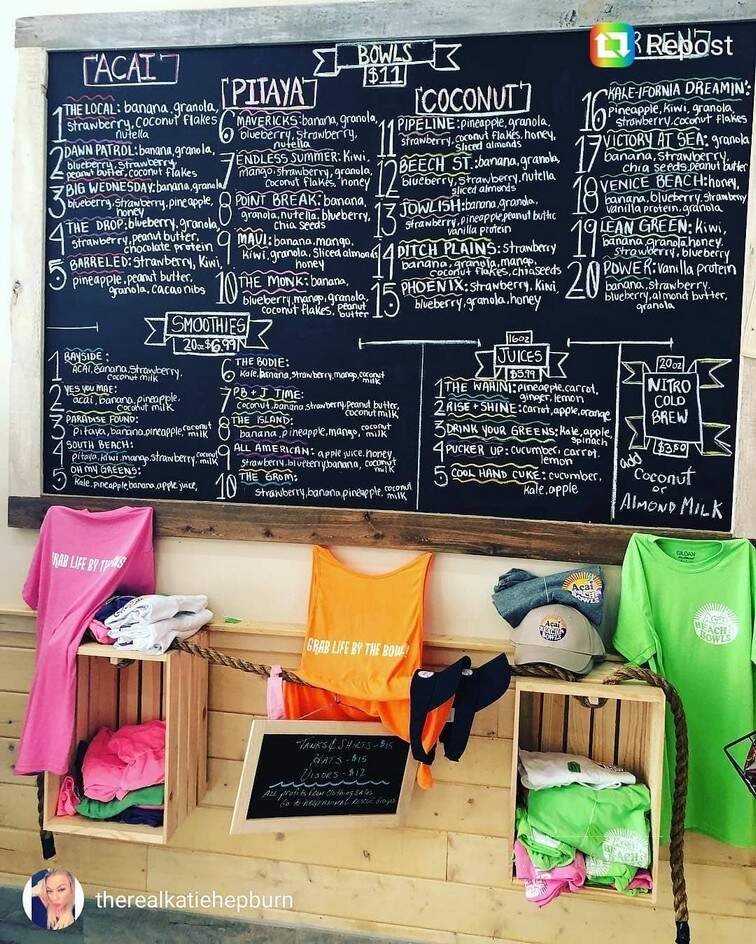 Repost
BOWLS
$11
ACAI
1 THE LOCAL: banana, granola,
strawberry, coconut flakes
nutella
2 DAWN PATROL: banana, granola,
blueberry, strawberry,
peanut butter, coconut flakes
3 BIG WEDNESDAY: banana, granola
blueberry, strawberry, pineapple,
honey
4 THE DROP: blueberry, granola,
strawberry, peanut butter,
chocolate protein
5 BARRELED: strawberry, Kiwi,
pineapple, peanut butter,
granola, cacao nibs
PITAYA
6 MAVERICKS: banana, granola,
blueberry, strawberry,
nutella
7 ENDLESS SUMMER: Kiwi,
mango, strawberry, granola,
coconut flakes, honey
8 POINT BREAK: banana,
granola, nutella, blueberry,
chia seeds
9 MAUI: banana, mango,
kiwi, granola, sliced almonds
honey
10 THE MONK: banana,
blueberry, mango, granola,
coconut flakes, peanut
butter
COCONUT
11 PIPELINE: pineapple, granola,
strawberry, coconut flakes, honey,
sliced almonds
12 BEECH ST: banana, granola,
blueberry, strawberry, nutella
sliced almonds
13 JOWLISH: banana, granola,
strawberry, pineapple, peanut butter
vanilla protein
14 DITCH PLAINS: strawberry
banana, granola, mango,
coconut flakes, chia seeds
15 PHOENIX: strawberry, Kiwi,
blueberry, granola, honey
16 KALE-IFORNIA DREAMIN':
pineapple, kiwi, granola,
strawberry, coconut flakes
17 VICTORY AT SEA: granola
banana, strawberry,
chia seeds, peanut butter
18 VENICE BEACH: honey,
banana, blueberry, strawberry
vanilla protein, granola
19 LEAN GREEN: kiwi,
banana, granola, honey,
strawberry, blueberry
20 POWER: vanilla protein
banana, strawberry,
blueberry, almond butter,
granola
SMOOTHIES
20oz $6.99
1 BAYSIDE:
acai, banana, strawberry,
coconut milk
2 YES YOU MAE:
acai, banana, pineapple,
coconut milk
3 PARADISE FOUND:
pitaya, banana, pineapple, coconut
milk
4 SOUTH BEACH:
pitaya, kiwi, mango, strawberry, coconut
milk
5 OH MY GREENS:
Kale, pineapple, banana, apple juice,
6 THE BODIE:
Kale, banana, strawberry, mango, coconut
milk
7 PB + J TIME:
coconut, banana, strawberry, peanut butter,
coconut milk
8 THE ISLAND:
banana, pineapple, mango, coconut
milk
9 ALL AMERICAN: apple juice, honey
strawberry, blueberry, banana, coconut
milk
10 THE GROM:
strawberry, banana, pineapple, coconut
milk
16oz
JUICES
$5.99
1 THE WAHINI: pineapple, carrot,
ginger, lemon
2 RISE + SHINE: carrot, apple, orange
3 DRINK YOUR GREENS: Kale, apple,
spinach
4 PUCKER UP: cucumber, carrot,
lemon
5 COOL HAND CUKE: cucumber,
Kale, apple
20oz
NITRO
COLD
BREW
$3.50
add
Coconut
or
ALMOND MILK
GRAB LIFE BY TH
GRAB LIFE BY THE BOWLS
Acai
BEACH
BOWLS
Acai
BOWLS
GILDAN
Acai
BEACH
BOWLS
TANKS & SHIRTS - $15
HATS - $15
VISORS - $12
All profits from clothing sales
Go to help animal rescue
BEACH
therealkatiehepburn